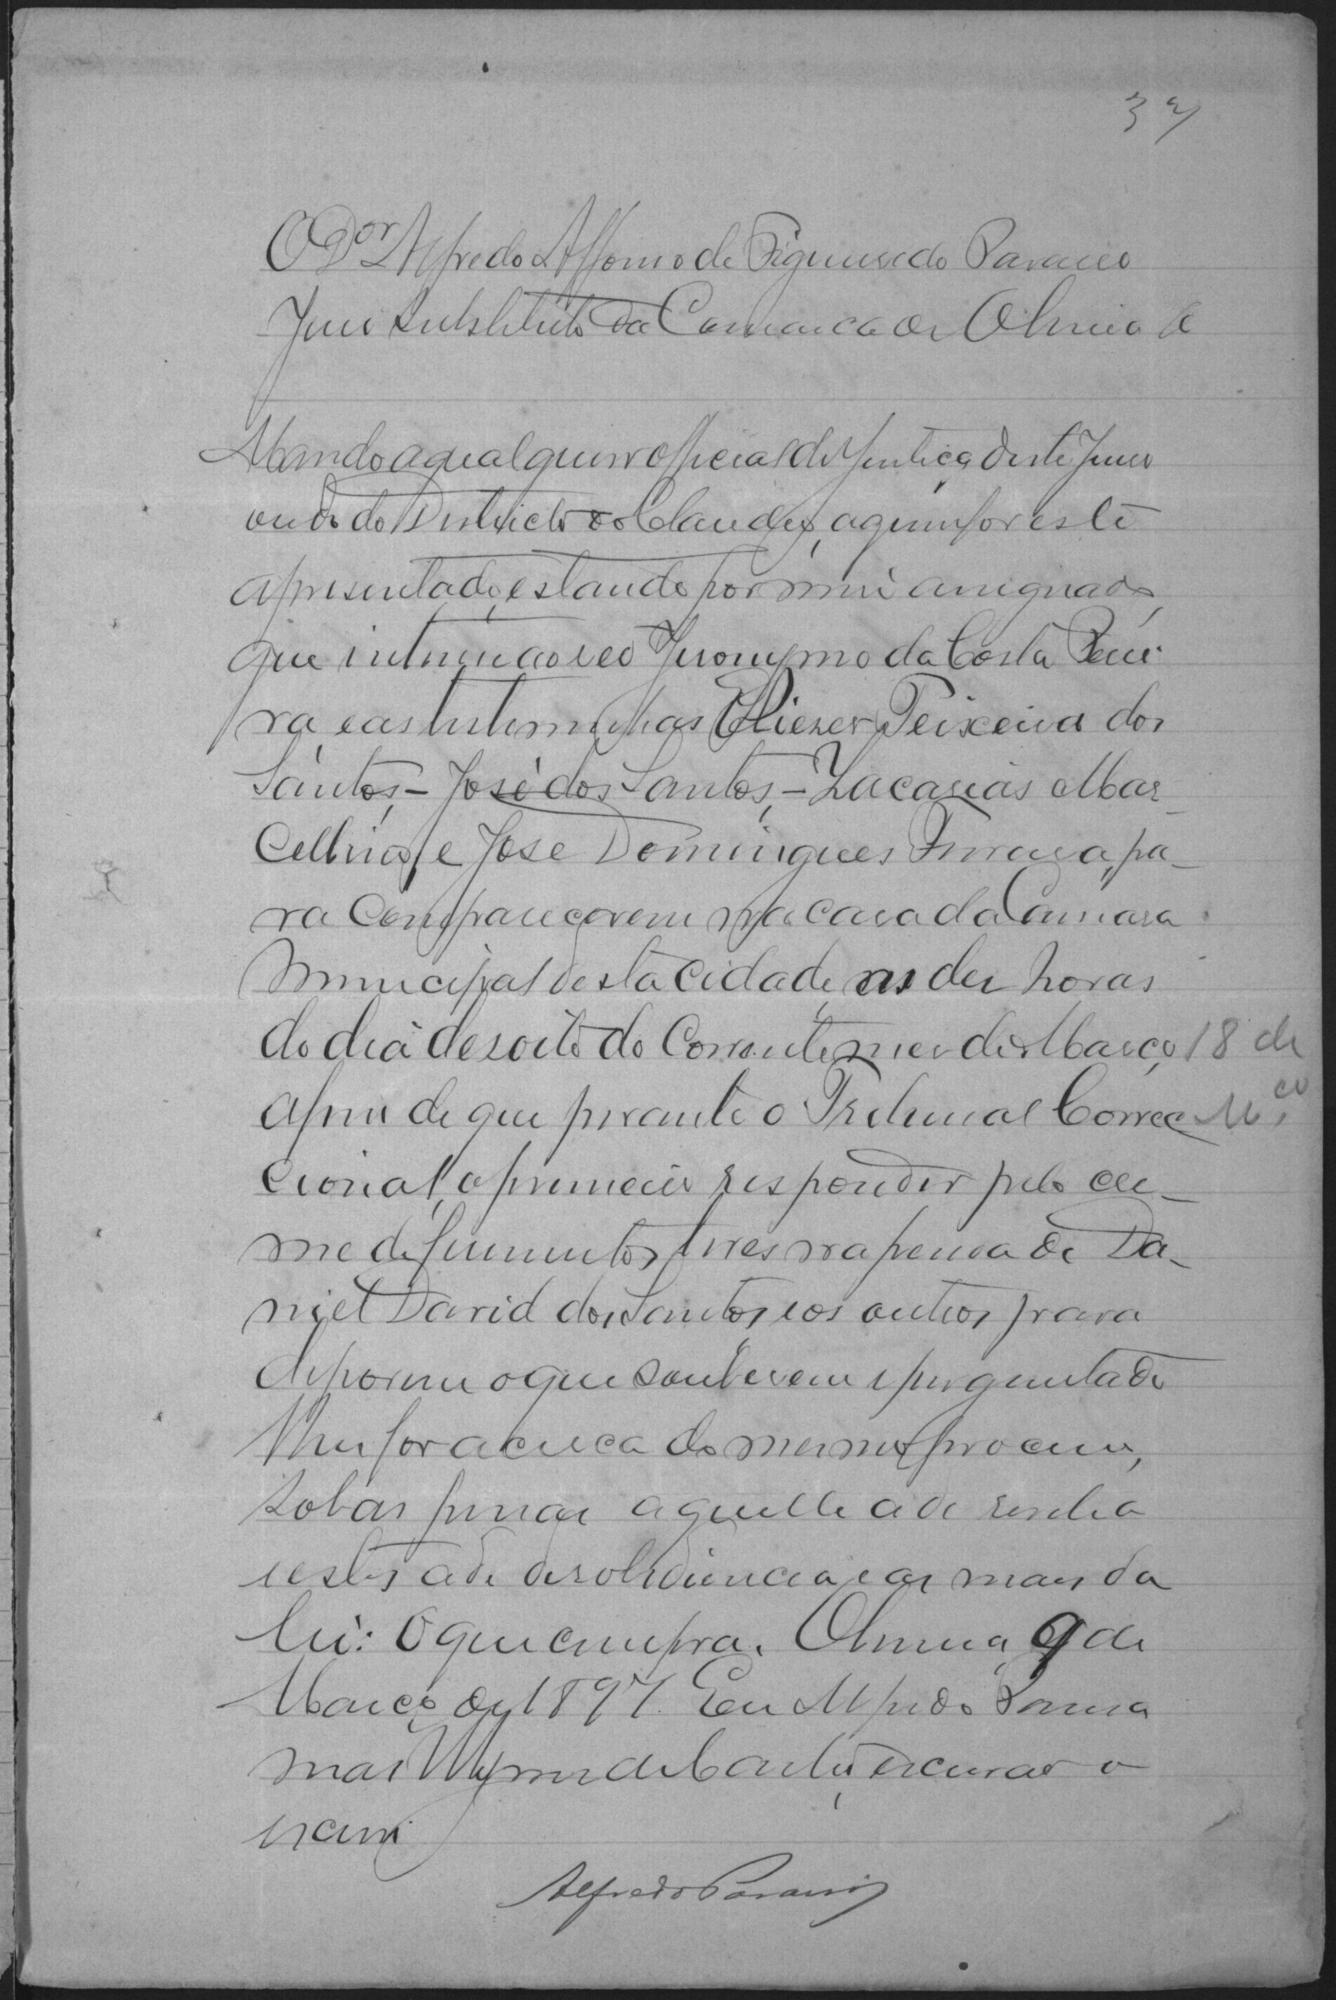 37
O Dor Alfredo Affonso de Figueiredo Paraiso
Juiz Substituto da Comarca de Olinda &
Mando a qualquer official de Justiça deste Juizo
ou do do Districto do a quem for este
apresentado, estando por mim assignado,
que intime ao reo Jeronymo da Costa Perei
ra e as testemunhas Eliezer Teixeira dos
Santos, - José dos Santos, - Zacarias Mar_
Cellino, e José Domingues Ferreira, pa_
ra Comparecerem na casa da Camara
Municipal desta Cidade, as dez horas
do dia desoito do Corrente mez de Março, 18 de
afim de que perante o Tribunal Correc Mço
cional, o primeiro responder pelo cri_
me de ferimentos leves na pessoa de Da_
niel David dos Santos, e os outros para
deporem o que souberem e perguntado
lhes for acerca do mesmo processo,
sob as penas aquelle a de revelia
e estes a de desobediencia e as mais da
lei: O que cumpra. Olinda, 9 de
Março de 1897. Eu Alfredo
mas de escrivão o
escrevi
Alfredo Paraiso